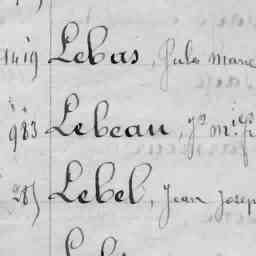 1419 Lebas, Jules Marie
983 Lebeau, Jn
285 Lebel, Jean Josep